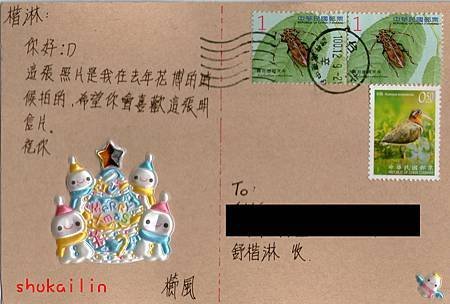 楷淋:
你好:D
這張照片是我在去年花博的時
候拍的,希望你會喜歡這張明
信片。
祝你
Merry
X'mas
櫛風
shukailin
1
中華民國郵票
1
中華民國郵票
0.50
中華民國郵票
REPUBLIC OF CHINA (TAIWAN)
To:
舒楷淋 收